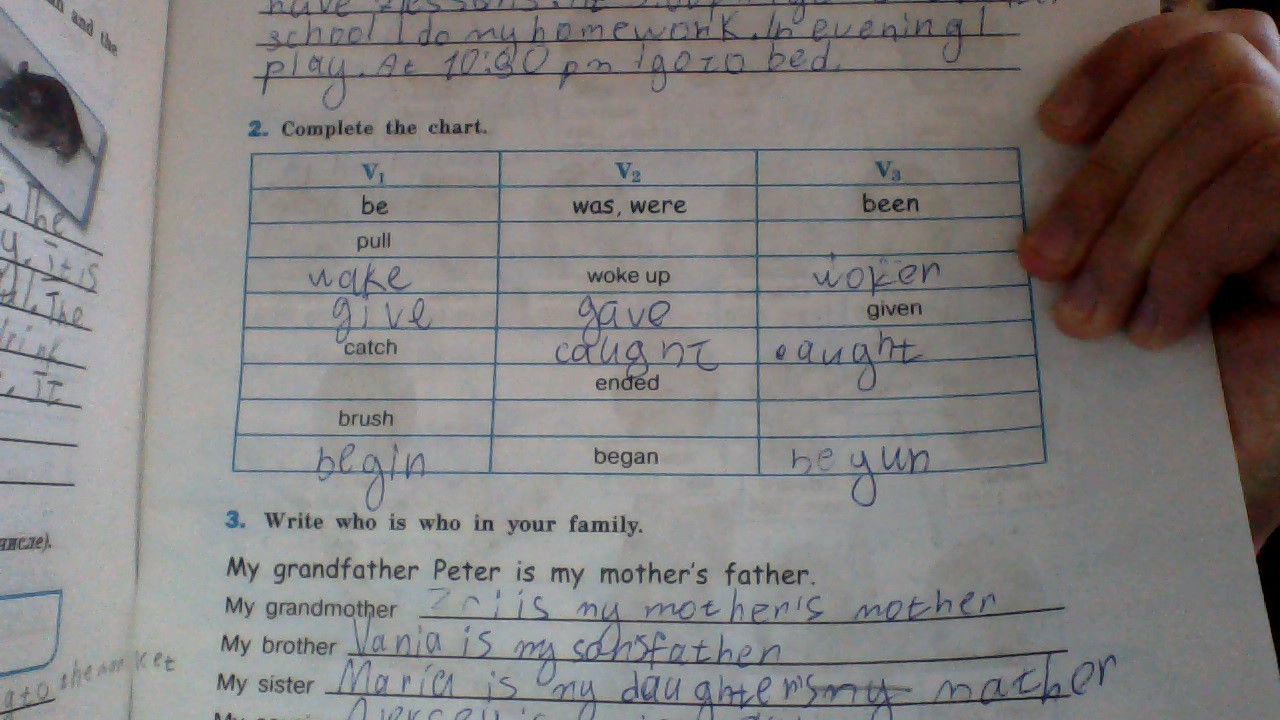 n and the
school I do my homework. In evening I
play. At 10:30 pm I go to bed.
2. Complete the chart.
V1 V2 V3
be was, were been
pull
wake woke up woken
give gave given
catch caught caught
ended
brush
begin began begun
3. Write who is who in your family.
My grandfather Peter is my mother's father.
My grandmother is my mother's mother
My brother Vania is my sansfather
My sister Maria is my daughter's my mather
The
y, it is
The
drink
it
числе).